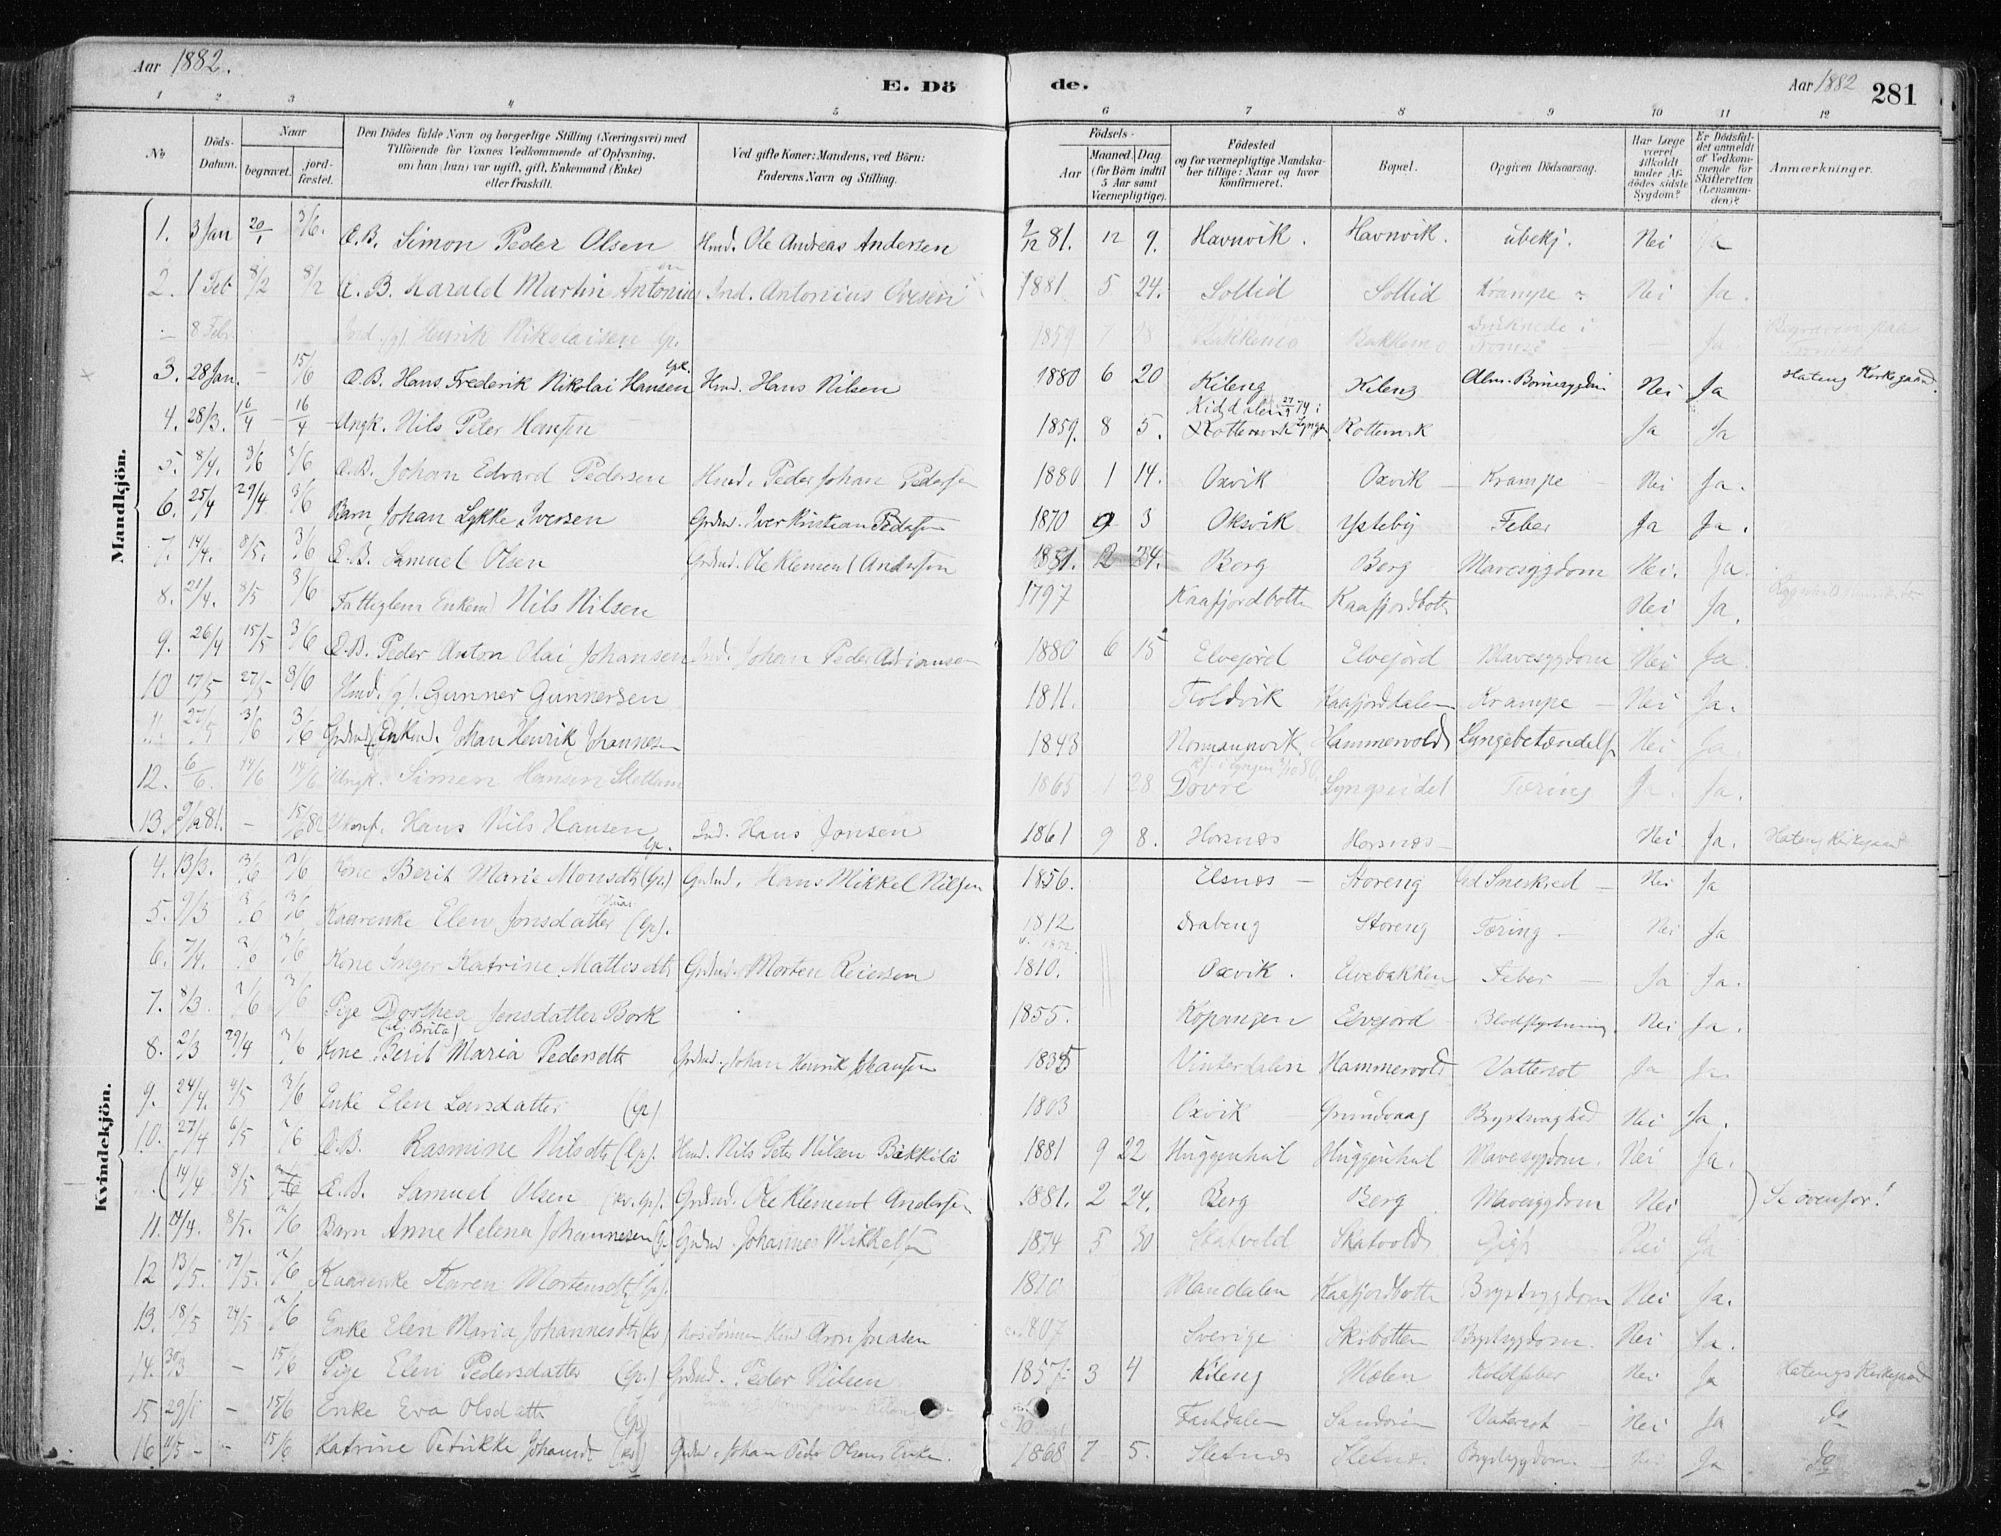 Aar 1882.
E. Dö
de.
Aar 1882
281
1 2 3 4 5 6 7 8 9 10 11 12
No
Döds-Datum.
Naar
begravet.
jord-fæstet.
Den Dödes fulde Navn og borgerlige Stilling (Næringsvei) med
Tilföiende for Voxnes Vedkommende af Oplysning,
om han (hun) var ugift, gift, Enkemand (Enke)
eller fraskilt.
Ved gifte Koner: Mandens, ved Börn:
Faderens Navn og Stilling.
Födsels-
Aar
Maaned. Dag
(for Börn indtil
5 Aar samt
Værnepligtige).
Födested
og for værnepligtige Mandska-
ber tillige: Naar og hvor
konfirmeret.
Bopæl.
Opgiven Dödsaarsag.
Har Læge
været
tilkaldt
under Af-
dödes sidste
Sygdom?
Er Dödsfal-
det anmeldt
af Vedkom-
mende for
Skifteretten
(Lensman-
den)?
Anmærkninger.
Mandkjön.
1. 3 Jan 20/1 3/6. Æ.B. Simon Peder Olsen Hmd. Ole Andreas Andersen 9/12 81. 12 9. Havnvik. Havnvik. ubekj. Nei Ja
2. 1 Feb 8/2 8/2 Æ.B. Harald Martin Ind. Antonius Ovesen 1881 5 24. Sollid Sollid Krampe Nei Ja.
- 8 Febr. Ind. (g) Henrik Nikolaisen Lp. 1859 7 Bakkemo Bakkemo Druknede i Tromsö - Ja Begraven paa
3. 28 Jan. - 15/6 Æ.B. Hans Frederik Nikolai Hansen Hmd. Hans Nilsen 1880 6 20 Kileng Kileng Alm. Börnesygdom Nei Ja Hateng Kirkegaard.
4. 28/3. 16/4 - 16/4 Ungk. Nils Peter Hansen 1859. 8 5. Kiddalen 27/9 74 i Lyngen Rottenvik Rottenvik Ja Ja
5. 8/4. 3/6 3/6 Æ.B. Johan Edvard Pedersen Hmd. Peder Johan Pedersen 1880 1 14. Oxvik Oxvik Krampe Nei Ja.
6. 25/4 29/4 3/6 Barn Johan Lykke Iversen Grdmd. Iver Kristian Pedersen 1870 9 3 Oksvik Ysteby Feber Ja Ja.
7. 14/4. 8/5. 3/6 Æ.B. Samuel Olsen Grdmd. Ole Klement Andersen 1881. 2 24. Berg Berg Mavesygdom Nei. Ja.
8. 21/4. 8/5 3/6 Fattiglem Enkemd Nils Nilsen 1797 Kaafjordbotn Kaafjordbotn Nei Ja.
9. 26/4 15/5 3/6 Æ.B. Peder Anton Olai Johansen Ind. Johan Peder Adriansen 1880 6 15 Elvejord Elvejord Mavesygdom Nei Ja
10 17/5 27/5 3/6 Hmd. (g). Gunner Gunnersen 1811. Toldvik Kaafjorddalen Krampe - Nei Ja.
11. 27/5 3/6 3/6 Grdmd (Enkemd. Johan Henrik Johannesen 1843 Normannvik Hammervold Lungebetændelse Nei Ja.
12. 6/6. 14/6 14/6 Ungk. Simen Hansen 1865 1 28 Dovre Lyngseidet Tæring Ja. Ja.
13. 9/12 81. - 15/6 82 Ukonf. Hans Nils Hansen Lp. Ind. Hans Jonsen 1861 9 8. Horsnæs Horsnæs - Nei Ja. Hateng Kirkegaard
Kvindekjön.
4. 13/3. 3/6 3/6 Kone Berit Marie Monsdtr (Lp.) Grdmd. Hans Mikkel Nilsen 1856. Elsnæs - Storeng ved Sneskred - Nei Ja
5. 9/3 3/6 3/6 Kaarenke Elen Jonsdatter (Lp). 1812 Drabeng Storeng Tæring - Nei Ja
6. 7/4. 3/6 3/6 Kone Inger Katrine Mattisdtr Grdmd. Morten Reiersen 1810. Oxvik. Elvebakken Feber Ja Ja.
7. 8/3 3/6 3/6 Pige Dorthea Jensdatter Bork 1855. Kopangen Elvejord Blodstyrtning. Nei Ja.
8. 2/3 29/4 3/6 Kone (el. Brita) Berit Maria Pedersdtr Grdmd. Johan Henrik Johansen 1835 Vinterdalen Hammervold Vattersot Ja Ja.
9. 24/4. 4/5 3/6 Enke Elen Larsdatter (Lp.) 1803 Oxvik - Grundvaag Brystsvaghed Nei Ja.
10. 27/4 6/5 3/6 Æ.B. Rasmine Nilsdtr (Lp). Hmd. Nils Peter Nilsen Bakkila 1881 9 22 Huggenhul Huggenhul Mavesygdom. Nei Ja.
(14/4 8/5 3/6 Æ.B. Samuel Olsen (kv. Lp). Grdmd. Ole Klement Andersen 1881. 2 24. Berg Berg Mavesygdom Nei Se ovenfor!
11. 24/4. 8/5. 3/6 Barn Anne Helena Johannesen Grdmd. Johannes Mikkelsen 1874 5 30 Skatvold Skatvold Gigt Nei Ja
12 13/5. 17/5. 3/6 Kaarenke Karen Mortensdtr (Lp). 1810 Mandalen Kaafjordbotn Brystsygdom Nei Ja.
13. 18/5 24/5 3/6 Enke Elen Maria Johannesdtr (Kv) hos Sönnen Hmd Aron Jonasen 1807 Sverige Skibotten Brystsygdom. Nei Ja.
14. 30/3 - 15/6 Pige Elen Pedersdatter (Lp.) Grdmd. Peder Nilsen 1857. 3 4 Kileng Mælen Koldfeber Nei Ja Hatengs Kirkegaard
15 29/1 - 15/6 Enke Eva Olsdattr (Lp) Vatersot - Nei Ja do
16. 11/5 - - 15/6 Katrine Petrikke Johansdt (Kv) Grdmd. Johan Peder Olsens Enke. 1868 7 5. Sletnæs Sletnæs Brystsygdom - Nei Ja do